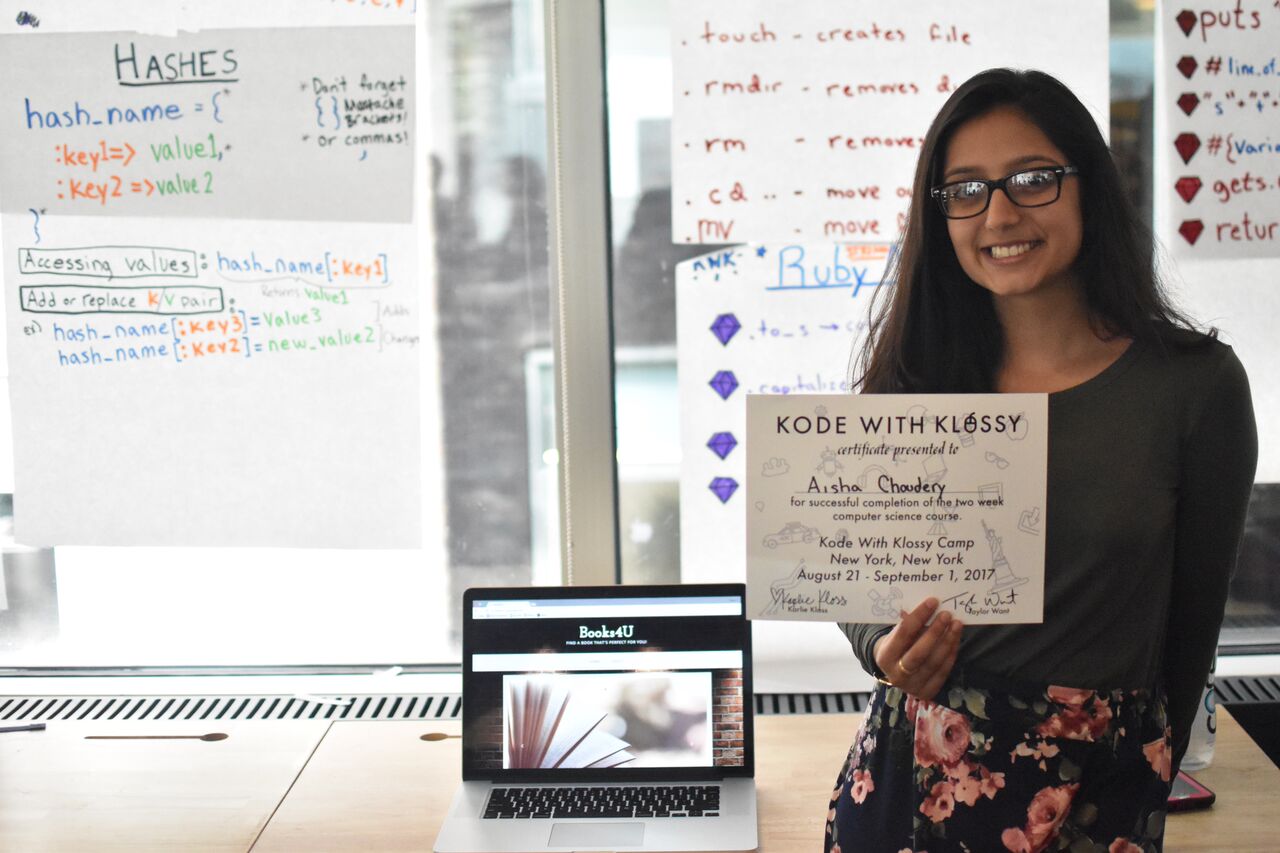 HASHES
hash_name = {"
:key1=> value1,"
:key2 =>value2
}"
" Don't forget
{ } Mustache
Brackets!
" or commas!
,
Accessing values : hash_name[:key1]
Returns value1
Add or replace K/V pair :
ex) hash_name[:key3]=value3 ] Adds
hash_name[:key2]=new_value2 ]
. touch - creates file
. rmdir - removes
. rm - removes
. cd .. - move
. mv - move
Ruby
.to_s →
.capitalize
puts "
# line_of_
"s"+"t"+
#{vari
gets.
retur
KODE WITH KLOSSY
certificate presented to
Aisha Choudery
for successful completion of the two week
computer science course.
Kode With Klossy Camp
New York, New York
August 21 - September 1, 2017
Karlie Kloss
Karlie Kloss
Taylor Want
Books4U
FIND A BOOK THAT'S PERFECT FOR YOU!